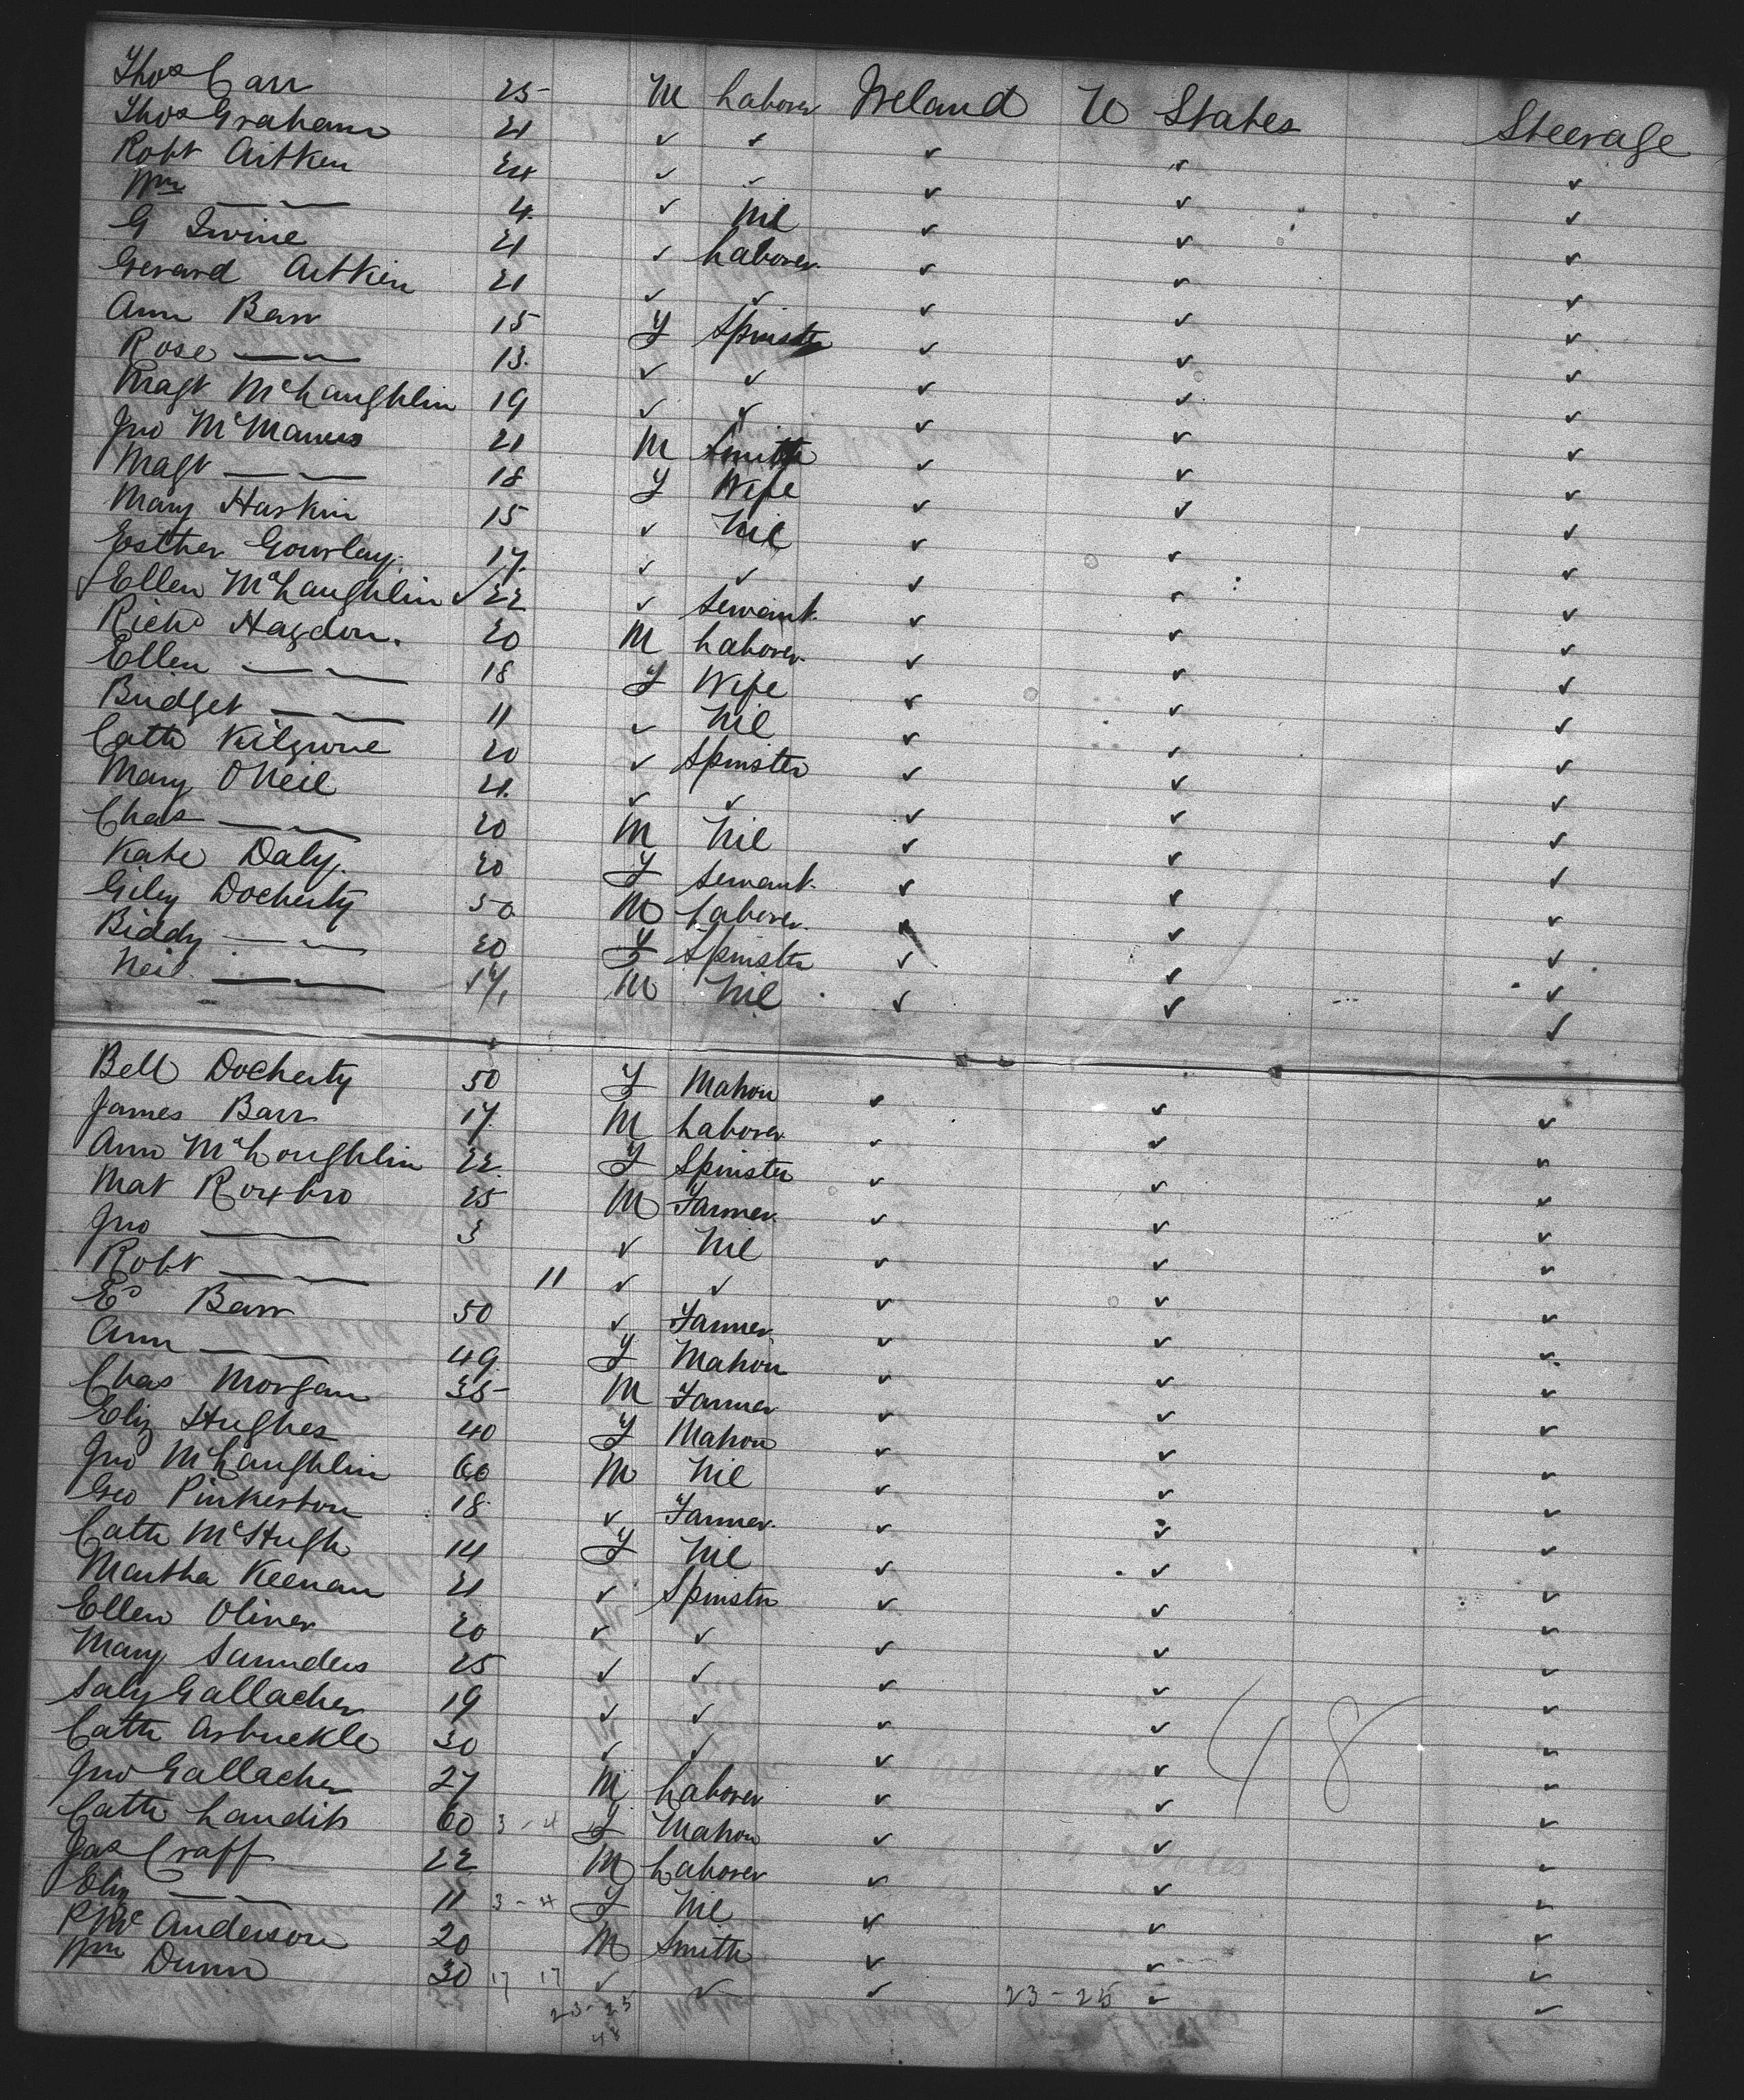 Thos Carr 25 M Laborer Ireland U States Steerage
Thos Graham 21 ✓ ✓ ✓ ✓ ✓
Robt Aitken 24 ✓ ✓ ✓ ✓ ✓
Wm — — 4 ✓ Nil ✓ ✓ ✓
G Irvine 21 ✓ Laborer ✓ ✓ ✓
Gerard Aitken 21 ✓ ✓ ✓ ✓ ✓
Ann Barr 15 F Spinster ✓ ✓ ✓
Rose — — 13 ✓ ✓ ✓ ✓ ✓
Magt McLaughlin 19 ✓ ✓ ✓ ✓ ✓
Jno McManus 21 M Smith ✓ ✓ ✓
Magt — — 18 F Wife ✓ ✓ ✓
Mary Haskin 15 ✓ Nil ✓ ✓ ✓
Esther Gourlay 17 ✓ ✓ ✓ ✓ ✓
✓ Ellen McLaughlin ✓ 22 ✓ Servant ✓ ✓ ✓
Richd Hagdon 20 M Laborer ✓ ✓ ✓
Ellen — — 18 F Wife ✓ ✓ ✓
Bridget — — 11 ✓ Nil ✓ ✓ ✓
Cath Kilgrove 20 ✓ Spinster ✓ ✓ ✓
Mary ONeil 21 ✓ ✓ ✓ ✓ ✓
Chas — — 20 M Nil ✓ ✓ ✓
Kate Daly 20 F Servant ✓ ✓ ✓
Giley Docherty 50 M Laborer ✓ ✓ ✓
Biddy — — 20 F Spinster ✓ ✓ ✓
Neil — — M Nil ✓ ✓ ✓
Bell Docherty 50 F Matron ✓ ✓ ✓
James Barr 17 M Laborer ✓ ✓ ✓
Ann McLoughlin 22 F Spinster ✓ ✓ ✓
Mat Roxbro 25 M Farmer ✓ ✓ ✓
Jno — 3 ✓ Nil ✓ ✓ ✓
Robt — — 11 ✓ ✓ ✓ ✓ ✓
Ed Barr 50 ✓ Farmer ✓ ✓ ✓
Ann — — 49 F Matron ✓ ✓ ✓
Chas Morgan 35 M Farmer ✓ ✓ ✓
Eliz Hughes 40 F Matron ✓ ✓ ✓
Jno McLaughlin 60 M Nil ✓ ✓ ✓
Geo Pinkerton 18 ✓ Farmer ✓ ✓ ✓
Cath McHugh 14 F Nil ✓ ✓ ✓
Martha Keenan 21 ✓ Spinster ✓ ✓ ✓
Ellen Oliver 20 ✓ ✓ ✓ ✓ ✓
Mary Saunders 25 ✓ ✓ ✓ ✓ ✓
Saly Gallacher 19 ✓ ✓ ✓ ✓ ✓
Cath Arbuckle 30 ✓ ✓ ✓ ✓ ✓
48
Jno Gallacher 27 M Laborer ✓ ✓ ✓
Cath Landits 60 3-4 F Matron ✓ ✓ ✓
Jas Craff 22 M Laborer ✓ ✓ ✓
Eliz — — 11 3-4 F Nil ✓ ✓ ✓
Anderson 20 M Smith ✓ ✓ ✓
Wm Dunn 30 17 17 ✓ ✓ ✓ 23-25 ✓ ✓
23-25
48